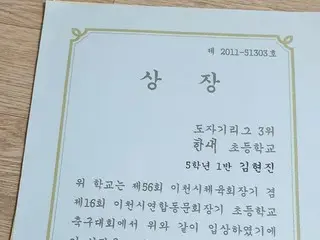 제 2011-51303호
상 장
도자기리그 3위
한새 초등학교
5학년 1반 김현진
위 학교는 제56회 이천시체육회장기 겸
제16회 이천시연합동문회장기 초등학교
축구대회에서 위와 같이 입상하였기에